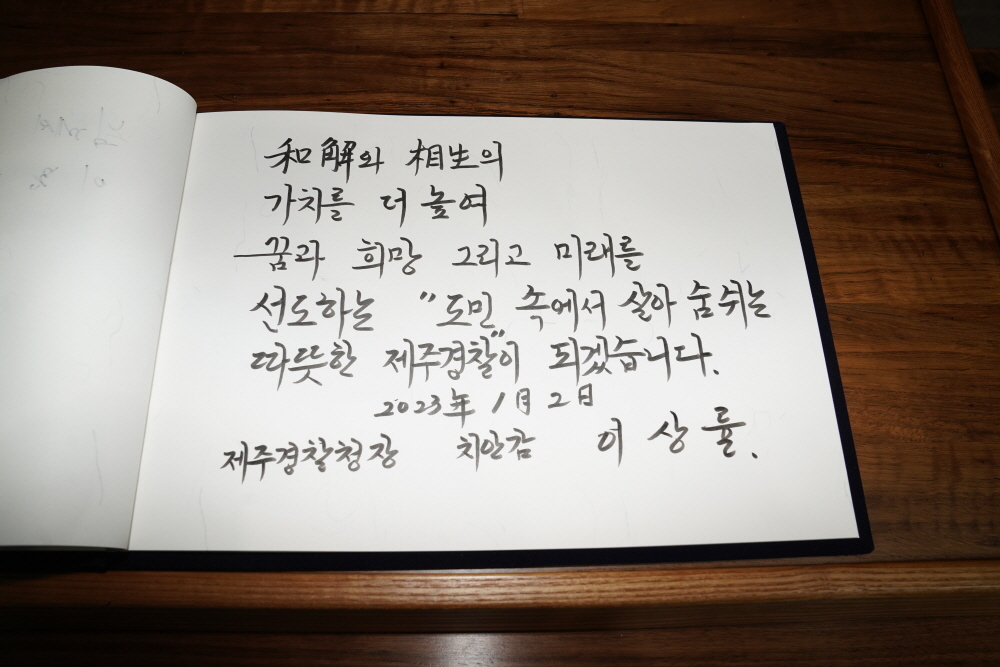 和解와 相生의
가치를 더 높여
꿈과 희망 그리고 미래를
선도하는 "도민 속에서 살아 숨쉬는
따뜻한 제주경찰"이 되겠습니다.
2023年 1月 2日
제주경찰청장 치안감 이상률.